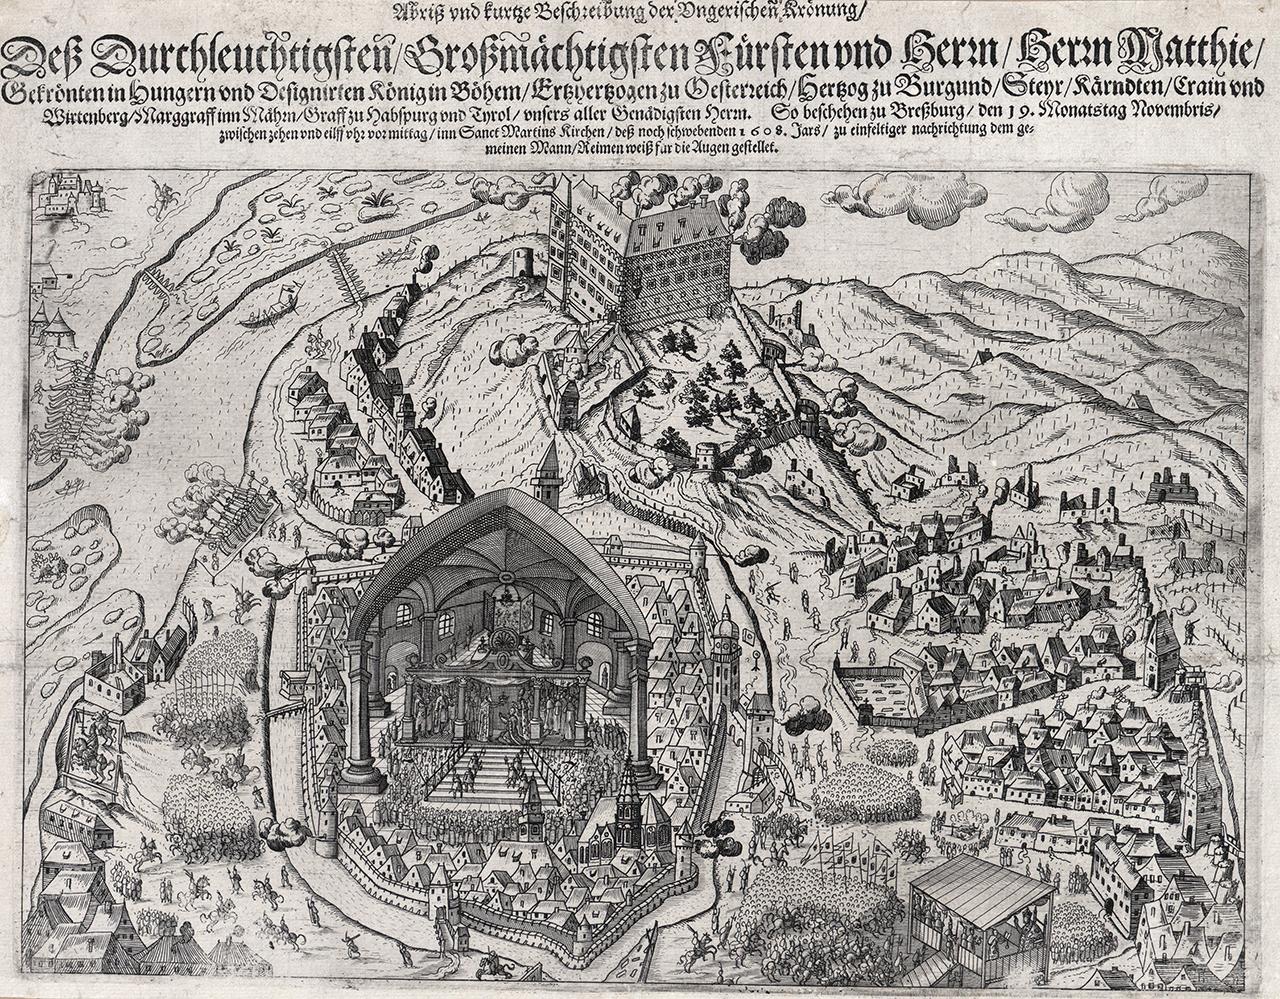 Abriß vnd kurtze Beschreibung der Vngerischen Krönung/
Deß Durchleuchtigsten/ Großmächtigsten Fürsten vnd Herrn/ Herrn Matthie/
Gekrönten in Hungern vnd Designirten König in Böhem/ Ertzhertzogen zu Oesterreich/ Hertzog zu Burgund/ Steyr/ Kärndten/ Crain vnd
Wirtenberg/ Marggraff inn Mährn/ Graff zu Habspurg vnd Tyrol/ vnsers aller Genädigsten Herrn. So beschehen zu Breßburg/ den 19. Monatstag Novembris/
zwischen zehen vnd eilff vhr vormittag/ inn Sanct Martins Kirchen/ deß noch schwebenden 1608. Jars/ zu einfeltiger nachrichtung dem ge-
meinen Mann/ Reimen weiß für die Augen gestellet.